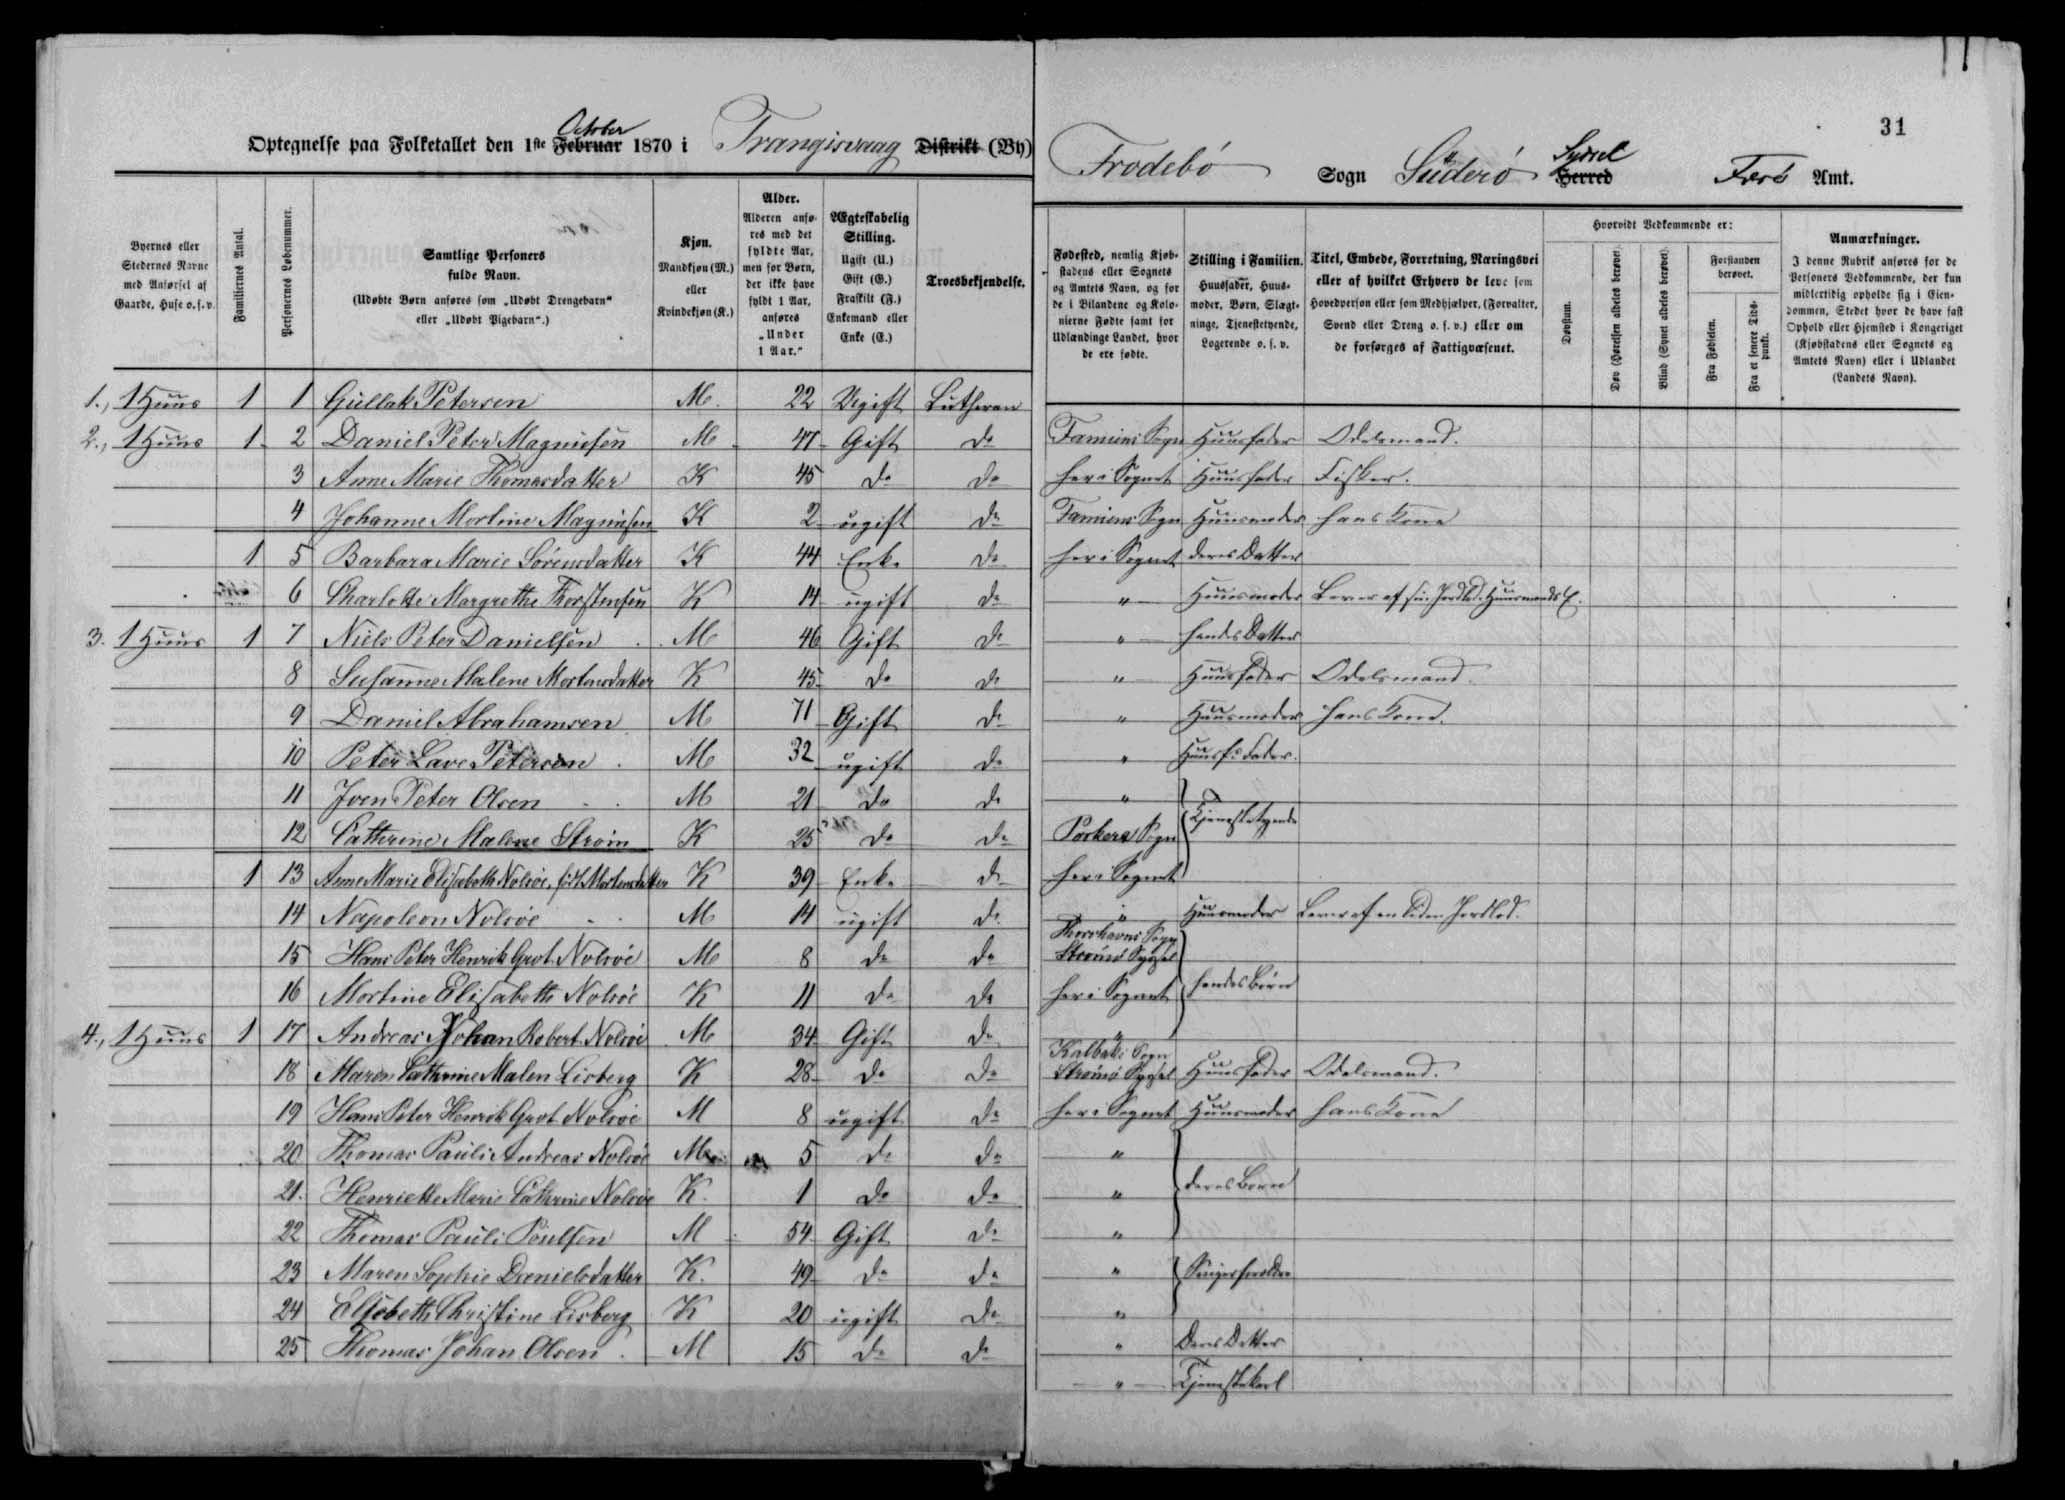 31
October
Optegnelse paa Folketallet den 1ste Februar 1870 i Trangisvaag Distrikt (By)
Frodebö Sogn Süderö Syssel Herred Ferö Amt.
Byernes eller Stedernes Navne med Anførsel af Gaarde, Huse o. s. v.
Familiernes Antal.
Personernes Løbenummer.
Samtlige Personers fulde Navn.
(Udøbte Børn anføres som „Udøbt Drengebarn" eller „Udøbt Pigebarn".)
Kjøn.
Mandkjøn (M.) eller Kvindekjøn (K.)
Alder.
Alderen anføres med det fyldte Aar, men for Børn, der ikke have fyldt 1 Aar, anføres „Under 1 Aar."
Ægteskabelig Stilling.
Ugift (U.) Gift (G.) Fraskilt (F.) Enkemand eller Enke (E.)
Troesbekjendelse.
Fødested, nemlig Kjøbstadens eller Sognets og Amtets Navn, og for de i Bilandene og Kolonierne Fødte samt for Udlændinge Landet, hvor de ere fødte.
Stilling i Familien.
Huusfader, Huusmoder, Børn, Slægtninge, Tjenestetyende, Logerende o. s. v.
Titel, Embede, Forretning, Næringsvei eller af hvilket Erhverv de leve som Hovedperson eller som Medhjælper, (Forvalter, Svend eller Dreng o. s. v.) eller om de forsørges af Fattigvæsenet.
Hvorvidt Vedkommende er:
Døvstum.
Døv (Hørelsen aldeles berøvet)
Blind (Synet aldeles berøvet)
Forstanden berøvet.
Fra Fødselen.
Fra et senere Tidspunkt.
Anmærkninger.
I denne Rubrik anføres for de Personers Vedkommende, der kun midlertidig opholde sig i Eiendommen, Stedet hvor de have fast Ophold eller Hjemsted i Kongeriget (Kjøbstadens eller Sognets og Amtets Navn) eller i Udlandet (Landets Navn).
1., 1 Huus 1 1 Gullak Petersen M. 22 Ugift Lutheran
2., 1 Huus 1 2 Daniel Peter Magnusen M 47 Gift do
3 Anne Marie Thomasdatter K 45 do do
4 Johanne Mortine Magnusen K 2 ugift do
1 5 Barbara Marie Sörensdatter K 44 Enke do
6 Charlotte Margrethe Thorstensen K 14 ugift do
3. 1 Huus 1 7 Niels Peter Danielsen M 46 Gift do
8 Susanne Malene Mortensdatter K 45 do do
9 Daniel Abrahamsen M 71 Gift do
10 Peter Lave Petersen M 32 ugift do
11 Joen Peter Olsen M 21 do do
12 Cathrine Malene Ström K 25 do do
1 13 Anne Marie Elisabeth Nolsöe, föd Mortensdatter K 39 Enke do
14 Napoleon Nolsöe M 14 ugift do
15 Hans Peter Henrik Grot Nolsöe M 8 do do
16 Mortine Elisabeth Nolsöe K 11 do do
4., 1 Huus 1 17 Andreas Johan Robert Nolsöe M 34 Gift do
18 Maren Cathrine Malen Lisberg K 28 do do
19 Hans Peter Henrik Grot Nolsöe M 8 ugift do
20 Thomas Pauli Andreas Nolsöe M 5 do do
21. Henriette Marie Cathrine Nolsöe K. 1 do do
22 Thomas Pauli Poulsen M 54 Gift do
23 Maren Sophie Danielsdatter K. 49 do do
24 Elsebeth Christine Lisberg K 20 ugift do
25 Thomas Johan Olsen M 15 do do
Famiens Sogn Huusfader Odelsmand.
her i Sognet Huusfader Fisker.
Famiens Sogn Huusmoder hans Kone
her i Sognet deres Datter
" Huusmoder Lever af sin Jordlod. Huusmands E.
" hendes Datter
" Huusfader Odelsmand.
" Huusmoder hans Kone.
" Huusf: Fader.
"
Porkere Sogn Tjenestetyende
her i Sognet
" Huusmoder Lever af en liden Jordlod.
Thorshavns Sogn
Strömö Syssel
her i Sognet hendes Börn
"
Kalbaks Sogn
Strömö Syssel Huusfader Odelsmand.
her i Sognet Huusmoder hans Kone
"
" deres Börn
"
" Svigerforældre
"
" Deres Datter
" Tjenestekarl